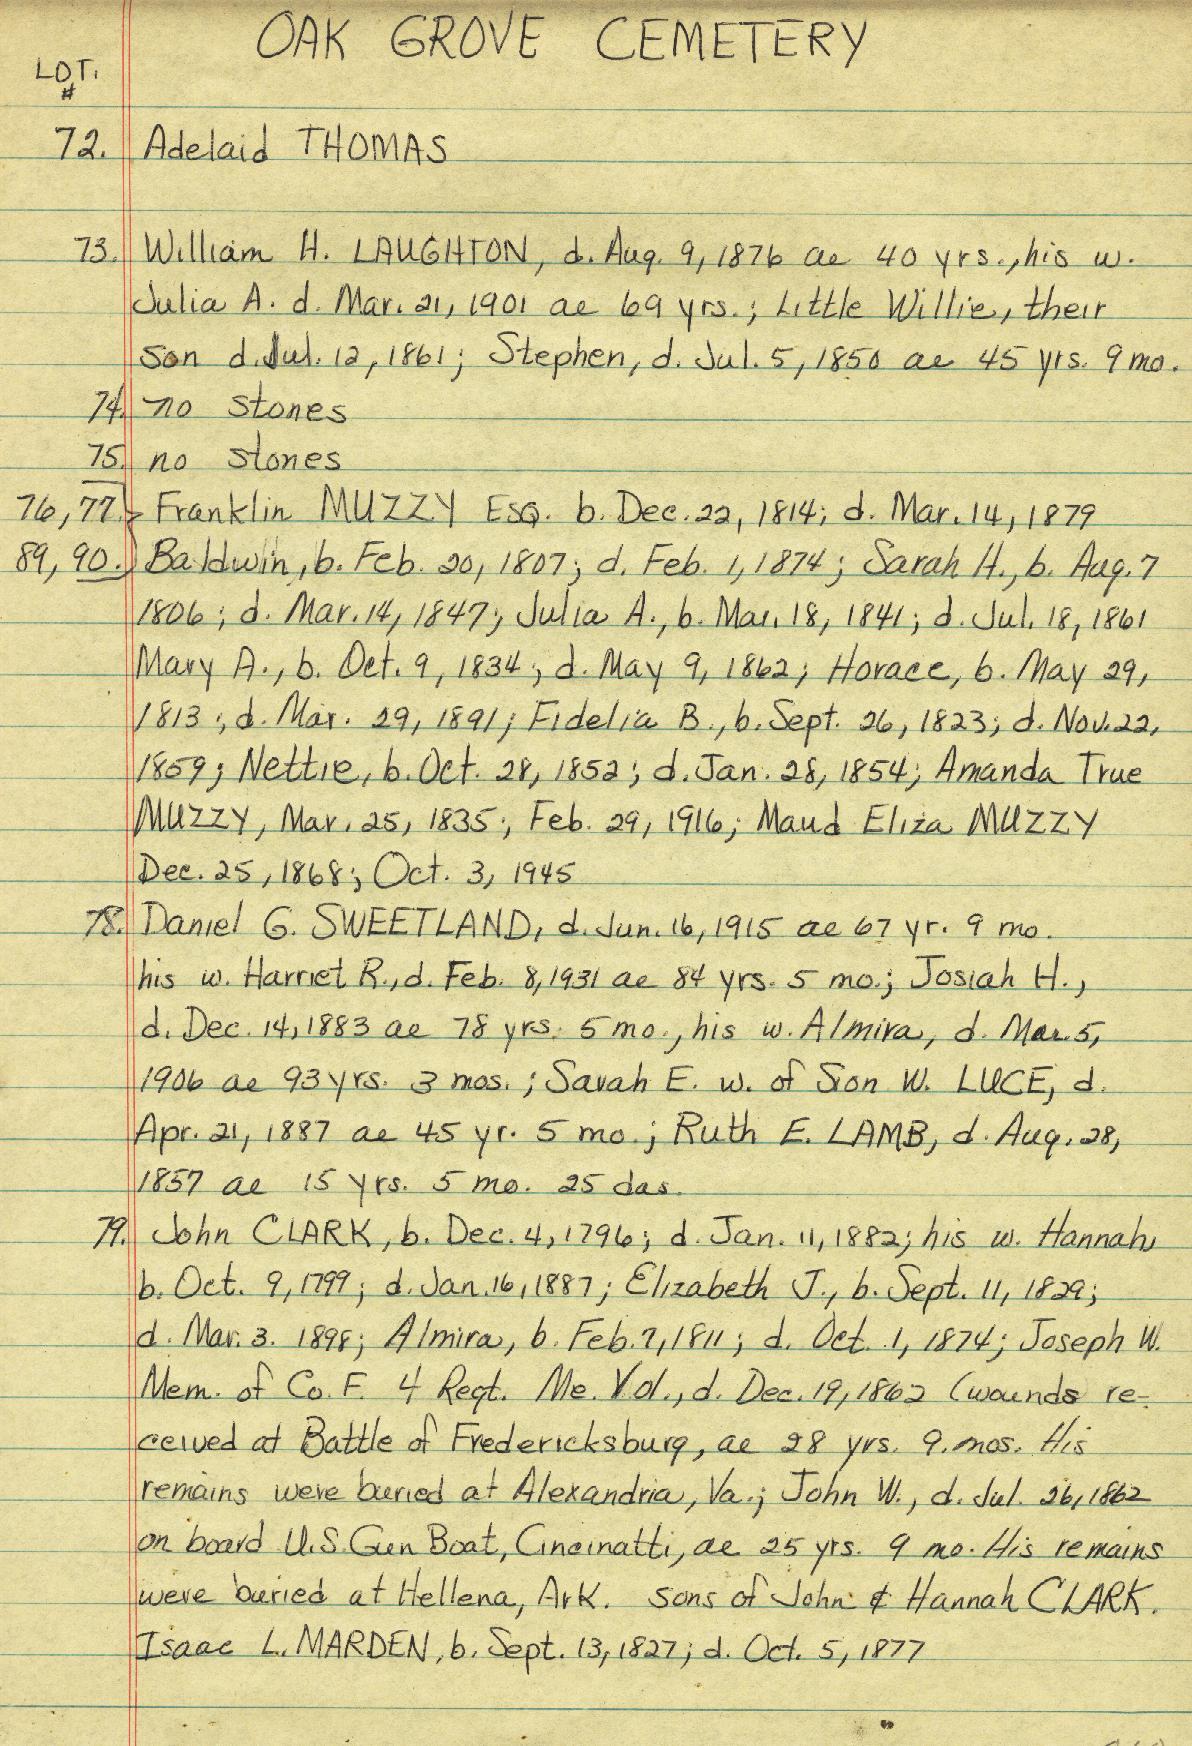 OAK GROVE CEMETERY
LOT.
#
72. Adelaid THOMAS
73. William H. LAUGHTON, d. Aug. 9, 1876 ae 40 yrs., his w.
Julia A. d. Mar. 21, 1901 ae 69 yrs.; Little Willie, their
son d. Jul. 12, 1861; Stephen, d. Jul. 5, 1850 ae 45 yrs. 9 mo.
74. no stones
75. no stones
76, 77. Franklin MUZZY ESQ. b. Dec. 22, 1814; d. Mar. 14, 1879
89, 90. Baldwin, b. Feb. 20, 1807; d. Feb. 1, 1874; Sarah H., b. Aug. 7
1806; d. Mar. 14, 1847; Julia A., b. Mar. 18, 1841; d. Jul. 18, 1861
Mary A., b. Oct. 9, 1834; d. May 9, 1862; Horace, b. May 29,
1813; d. Mar. 29, 1891; Fidelia B., b. Sept. 26, 1823; d. Nov. 22,
1859; Nettie, b. Oct. 28, 1852; d. Jan. 28, 1854; Amanda True
MUZZY, Mar. 25, 1835; Feb. 29, 1916; Maud Eliza MUZZY
Dec. 25, 1868; Oct. 3, 1945
78. Daniel G. SWEETLAND, d. Jun. 16, 1915 ae 67 yr. 9 mo.
his w. Harriet R., d. Feb. 8, 1931 ae 84 yrs. 5 mo.; Josiah H.,
d. Dec. 14, 1883 ae 78 yrs. 5 mo., his w. Almira, d. Mar. 5,
1906 ae 93 yrs. 3 mos.; Sarah E. w. of Sion W. LUCE, d.
Apr. 21, 1887 ae 45 yr. 5 mo.; Ruth E. LAMB, d. Aug. 28,
1857 ae 15 yrs. 5 mo. 25 das.
79. John CLARK, b. Dec. 4, 1796; d. Jan. 11, 1882; his w. Hannah,
b. Oct. 9, 1799; d. Jan. 16, 1887; Elizabeth J., b. Sept. 11, 1829;
d. Mar. 3. 1898; Almira, b. Feb. 7, 1811; d. Oct. 1, 1874; Joseph W.
Mem. of Co. F. 4 Regt. Me. Vol., d. Dec. 19, 1862 (wounds re-
ceived at Battle of Fredericksburg, ae 28 yrs. 9. mos. His
remains were buried at Alexandria, Va.; John W., d. Jul. 26, 1862
on board U.S. Gun Boat, Cincinatti, ae 25 yrs. 9 mo. His remains
were buried at Hellena, Ark. sons of John & Hannah CLARK.
Isaac L. MARDEN, b. Sept. 13, 1827; d. Oct. 5, 1877